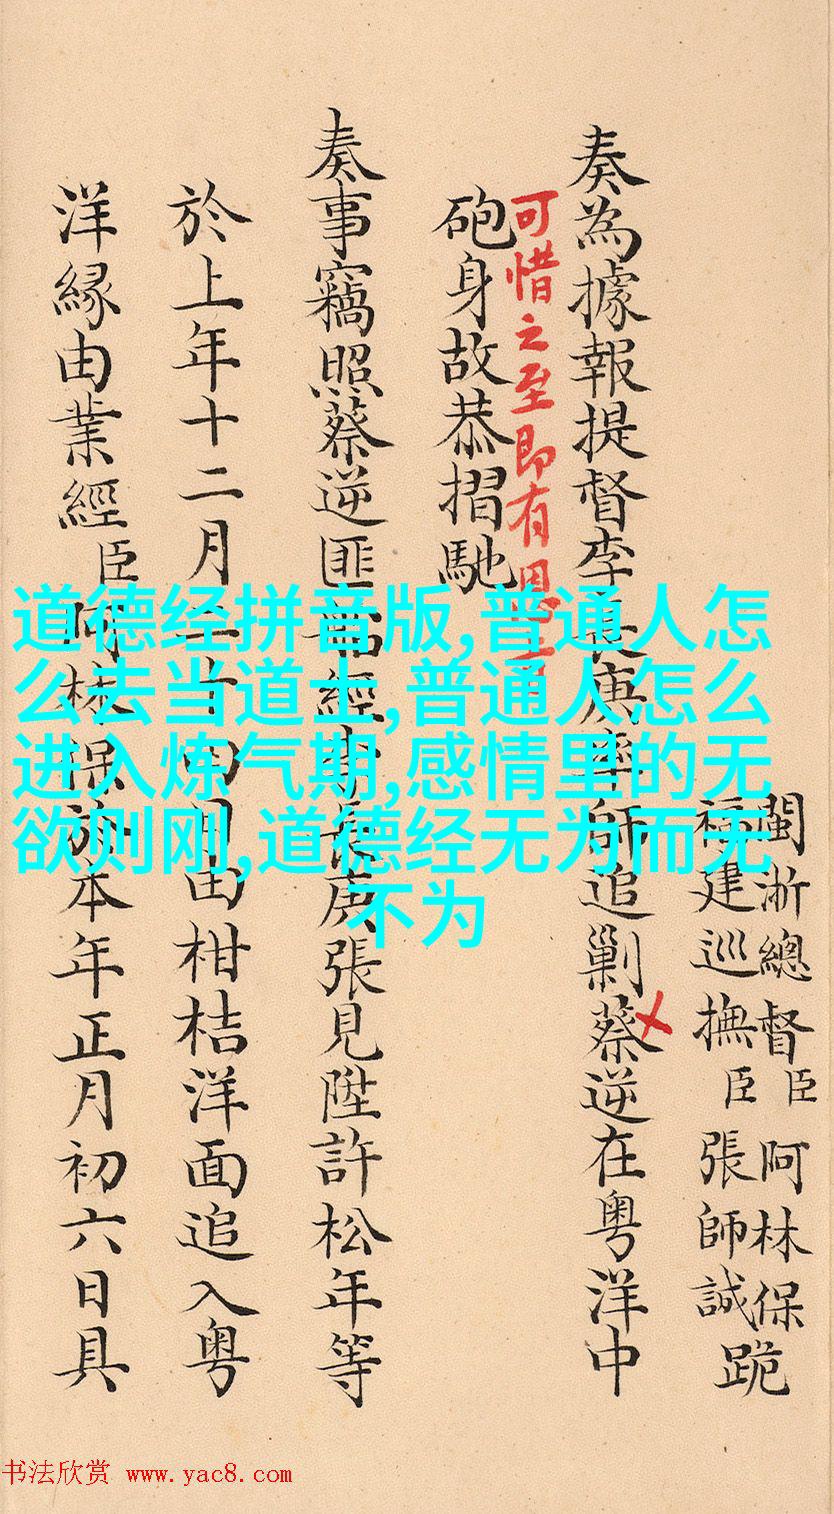 閩浙總督臣阿林保跪
福建巡撫臣張師誠
奏為據報提督李長庚率師追剿蔡逆在粤洋中
可惜之至即有恩旨
砲身故恭摺馳
奏事竊照蔡逆匪船經李長庚張見陞許松年等
於上年十二月二十四日由柑桔洋面追入粤
洋縁由業經臣阿林保於本年正月初六日具
道德经拼音版,普通人怎
么去当道士,普通人怎么
进入炼气期,感情里的无
欲则刚,道德经无为而无
不为
书法欣赏 www.yac8.com